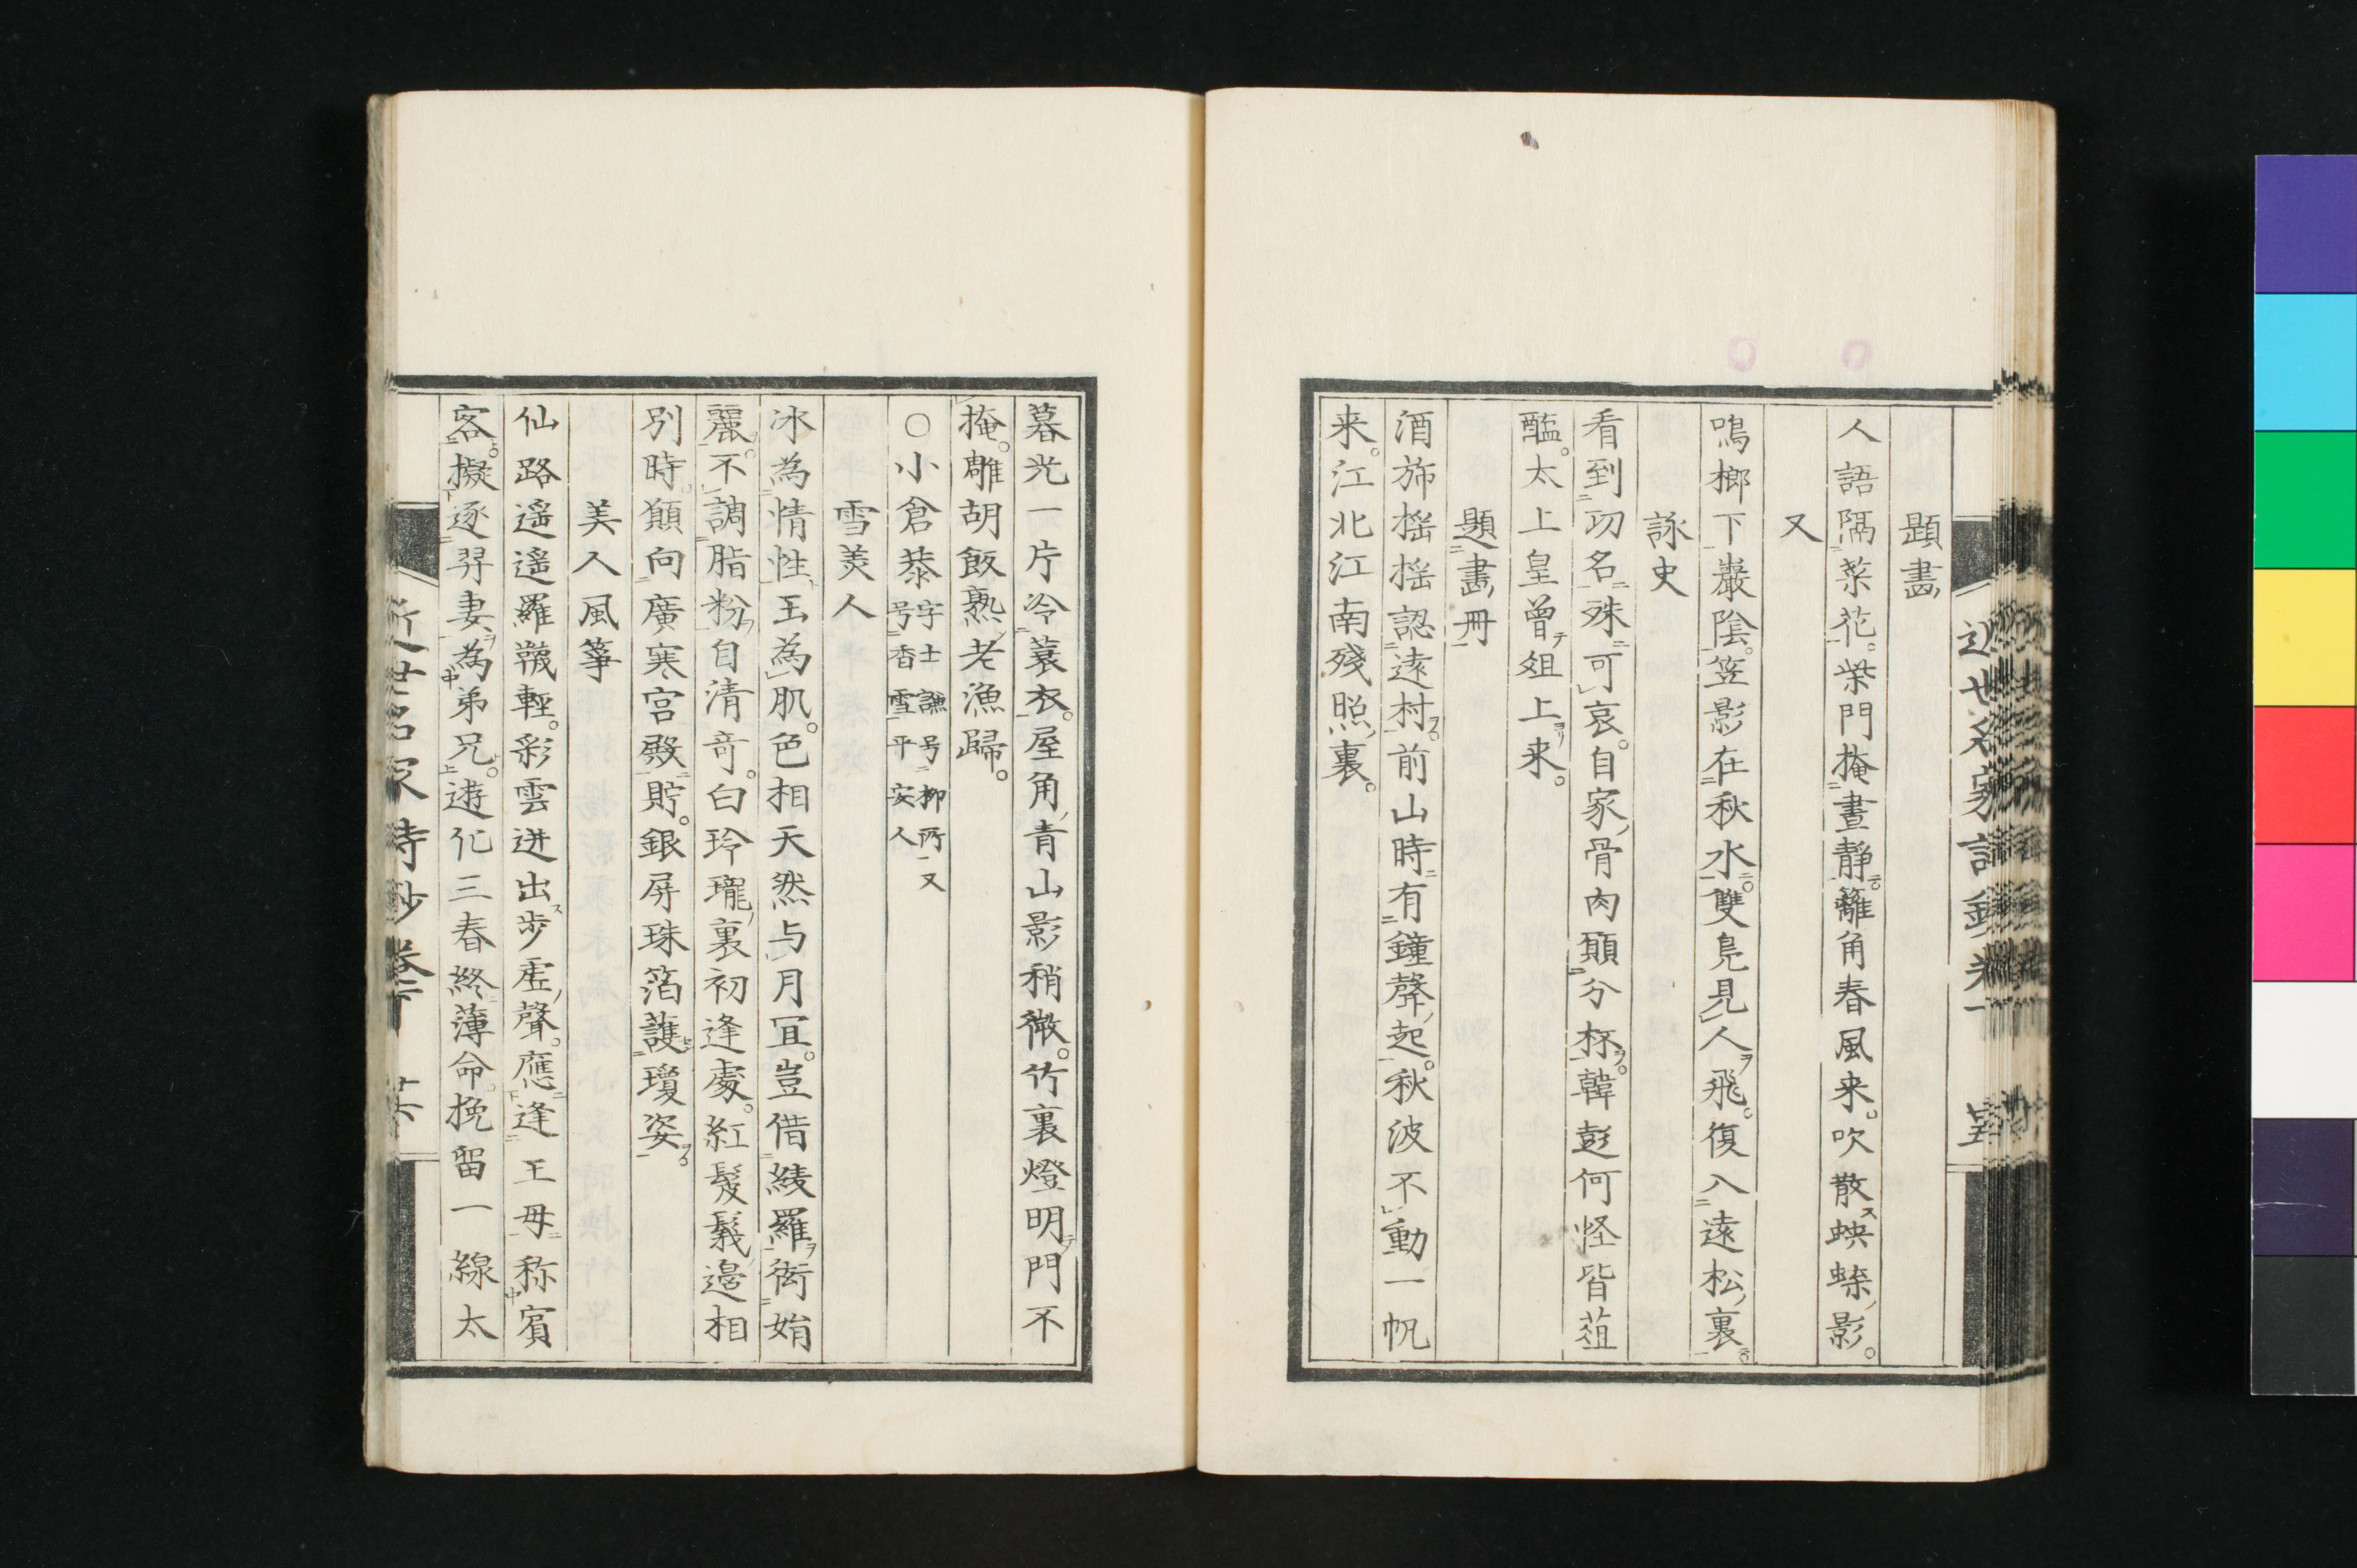 題畫
人語隔菜花。柴門掩晝靜。籬角春風来。吹散蛺蝶影。
又
鳴榔下巖陰。笠影在秋水。雙鳧見人飛。復入遠松裏。
詠史
看到功名殊可哀。自家骨肉願分杯。韓彭何怪皆葅
醢。太上皇曾俎上来。
題畫冊
酒斾搖搖認遠村。前山時有鐘聲起。秋波不動一帆
来。江北江南殘照裏。
暮光一片冷蓑衣。屋角青山影稍微。竹裏燈明門不
掩。雕胡飯熟老漁歸。
○小倉㳟字士謙号柳所又
号香雪平安人
雪美人
冰為情性玉為肌。色相天然与月冝。豈借綾羅衒婧
麗。不調脂粉自清奇。白玲瓏裏初逢處。紅髮鬟邉相
別時。願向廣寒宮殿貯。銀屏珠箔護瓊姿。
美人風箏
仙路遥遥羅韈輕。彩雲迸出步虛聲。應逢王母称賓
客。擬逐羿妻為弟兄。遊化三春終薄命。挽留一線太
近世名家詩鈔卷下 廿六